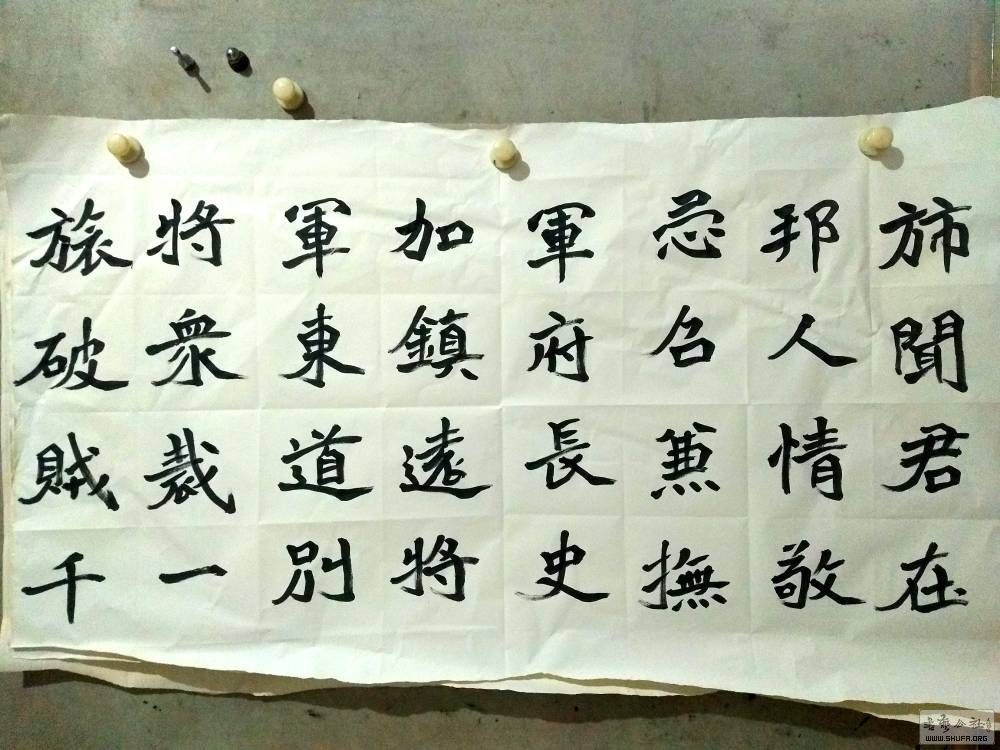 斾聞君在
邦人情敬
召兼撫
軍府長史
加鎮遠將
軍東道別
將衆裁一
旅破賊千
书法公社
WWW.SHUFA.ORG